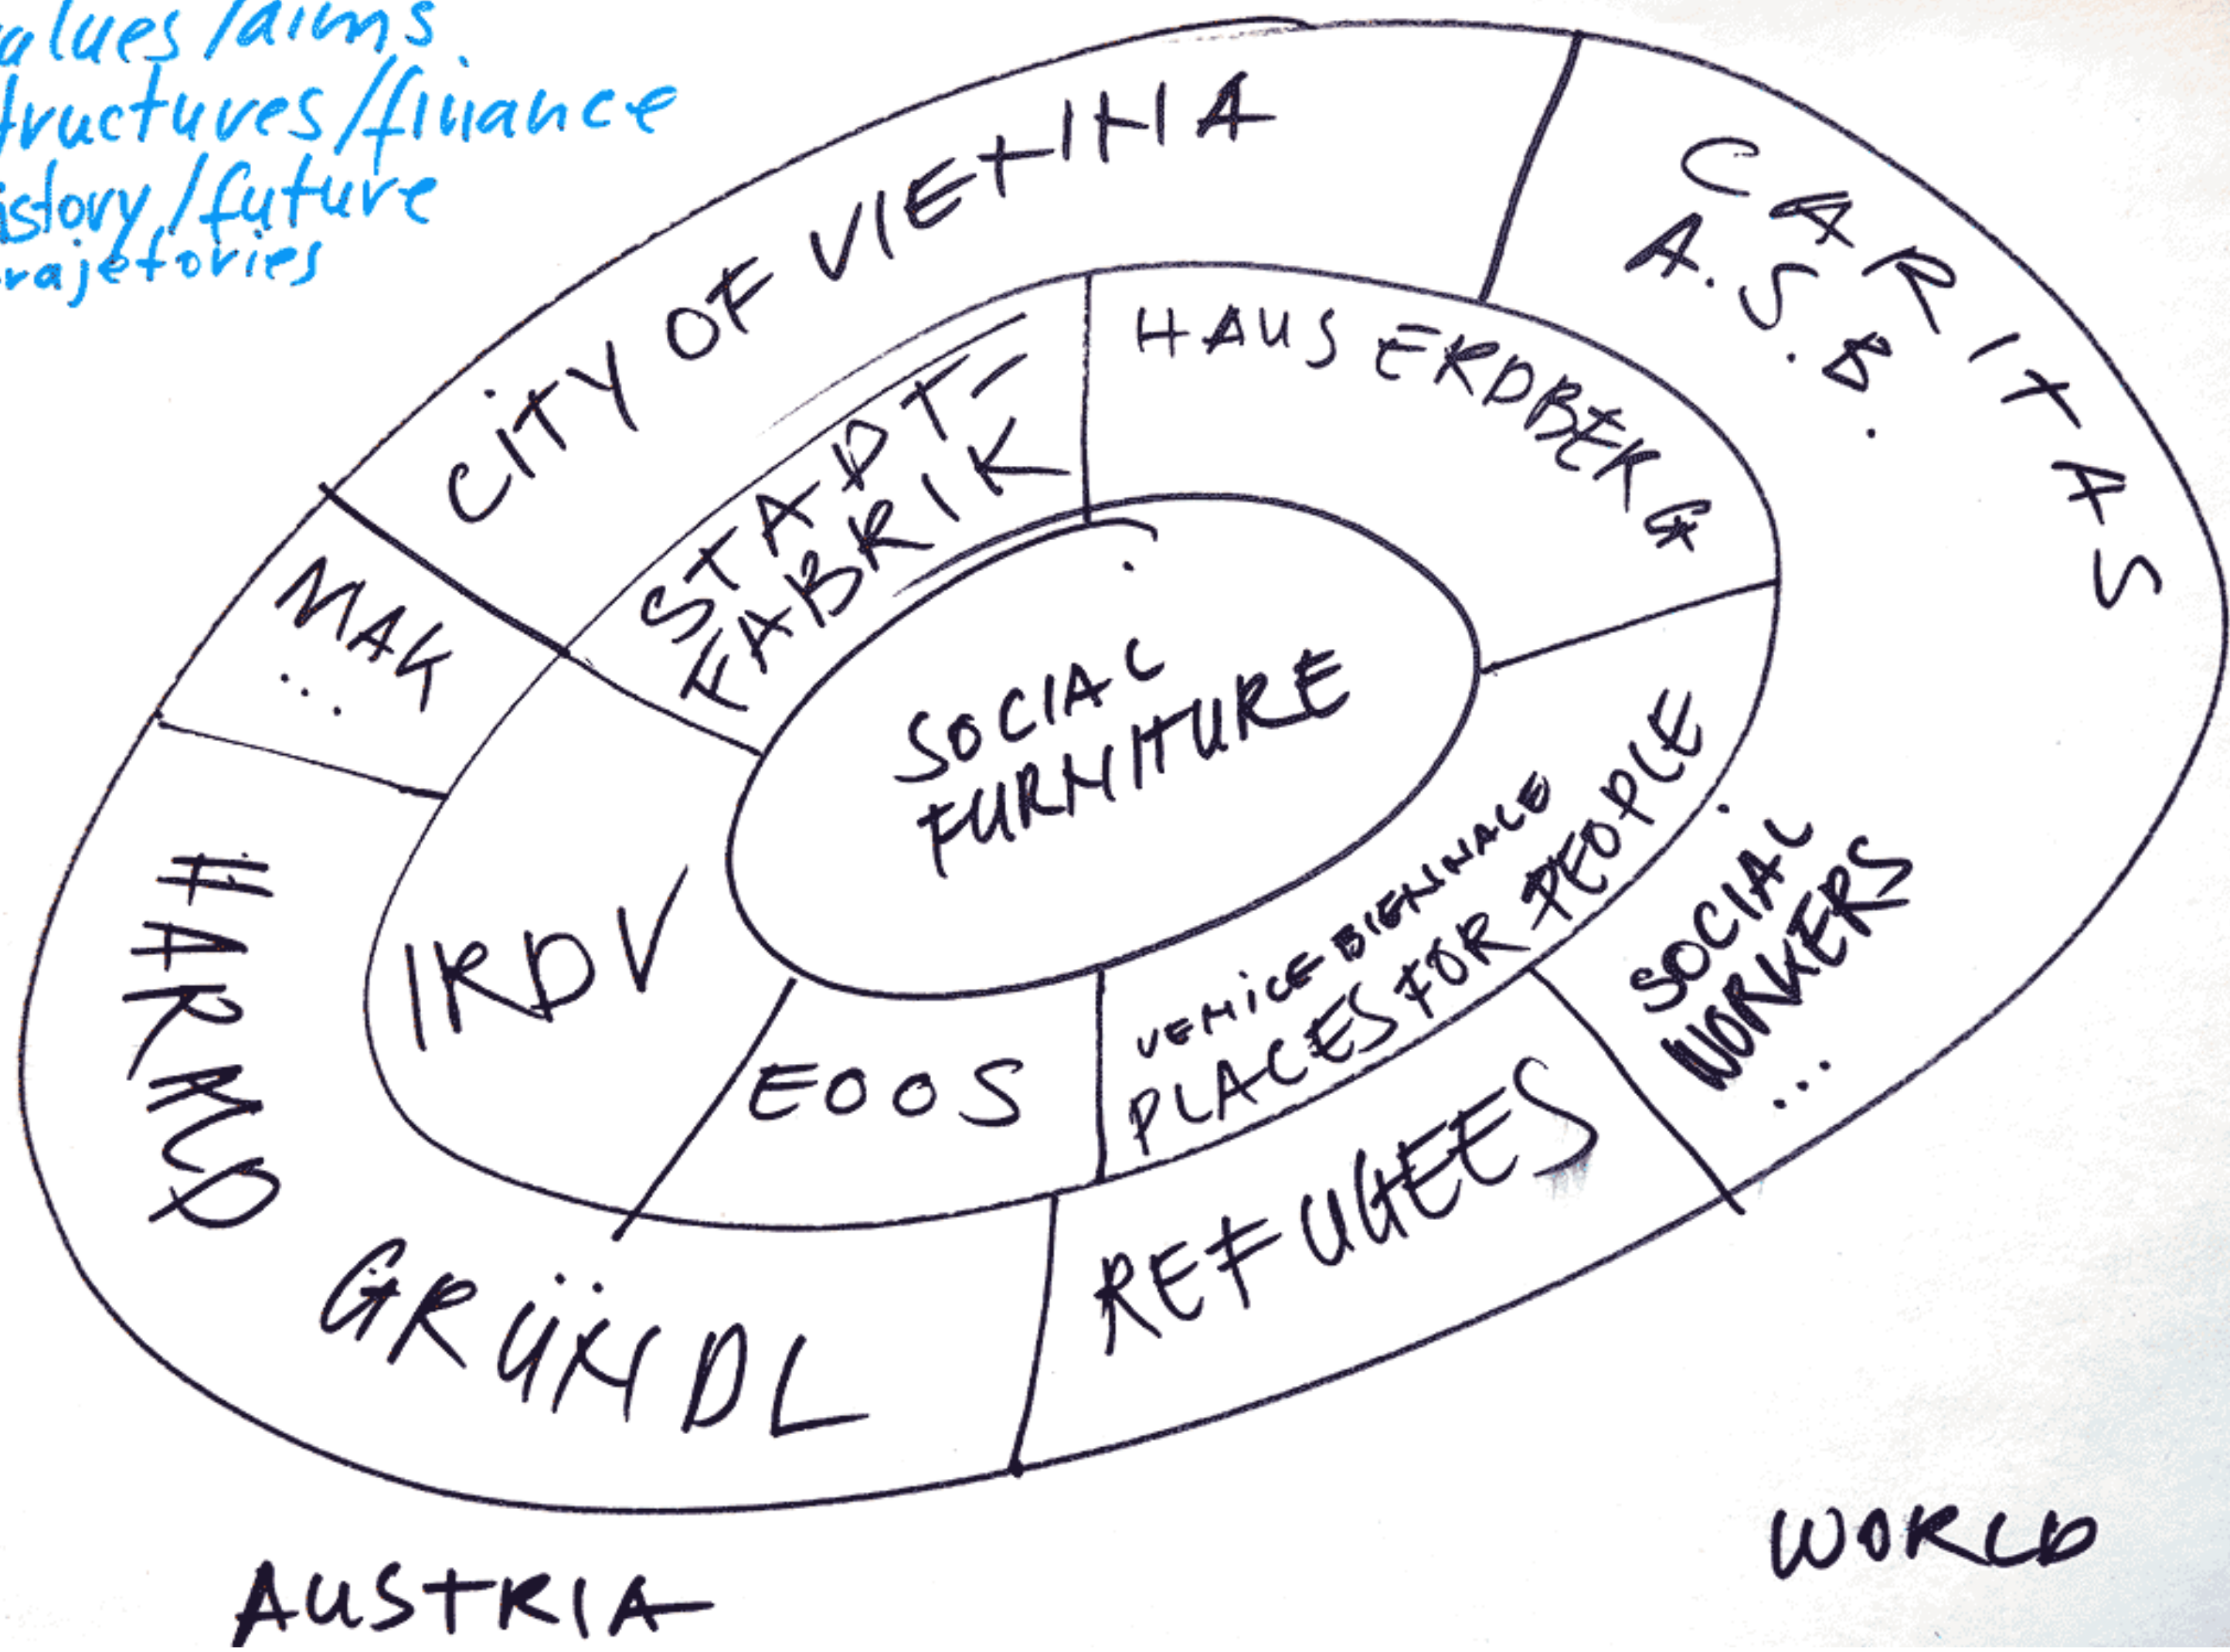 alues/aims
tructures/finance
istory/future
rajetories
CiTY OF VIENNA
CARITAS
A.S.B.
STADT-
FABRIK
HAUS ERDBERG
MAK
...
SOCIAL
FURNITURE
IRDV
EOOS
VENiCE BIENNALE
PLACES FOR PEOPLE
SOCIAL
WORKERS
...
HARALD
GRÜNDL
REFUGEES
WORLD
AUSTRIA